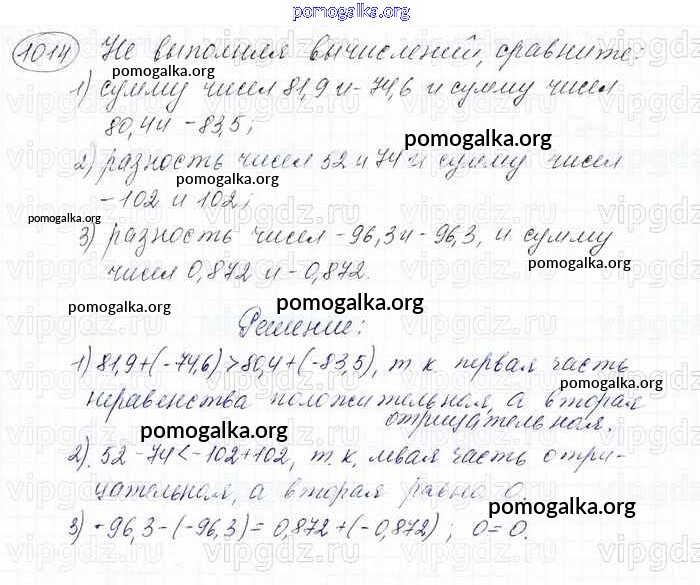 pomogalka.org
1014 Не выполняя вычислений, сравните:
pomogalka.org
1) сумму чисел 81,9 и -74,6 и сумму чисел
80,4 и -83,5;
pomogalka.org
2) разность чисел 52 и 74 и сумму чисел
pomogalka.org
-102 и 102;
pomogalka.org
3) разность чисел -96,3 и -96,3, и сумму
pomogalka.org
чисел 0,872 и -0,872.
pomogalka.org pomogalka.org
Решение:
1) 81,9+(-74,6)>80,4+(-83,5), т.к. первая часть
pomogalka.org
неравенства положительная, а вторая
отрицательная.
pomogalka.org
2) 52-74<-102+102, т.к. левая часть отри-
pomogalka.org
цательная, а вторая равна 0.
pomogalka.org
3) -96,3-(-96,3)=0,872+(-0,872); 0=0.